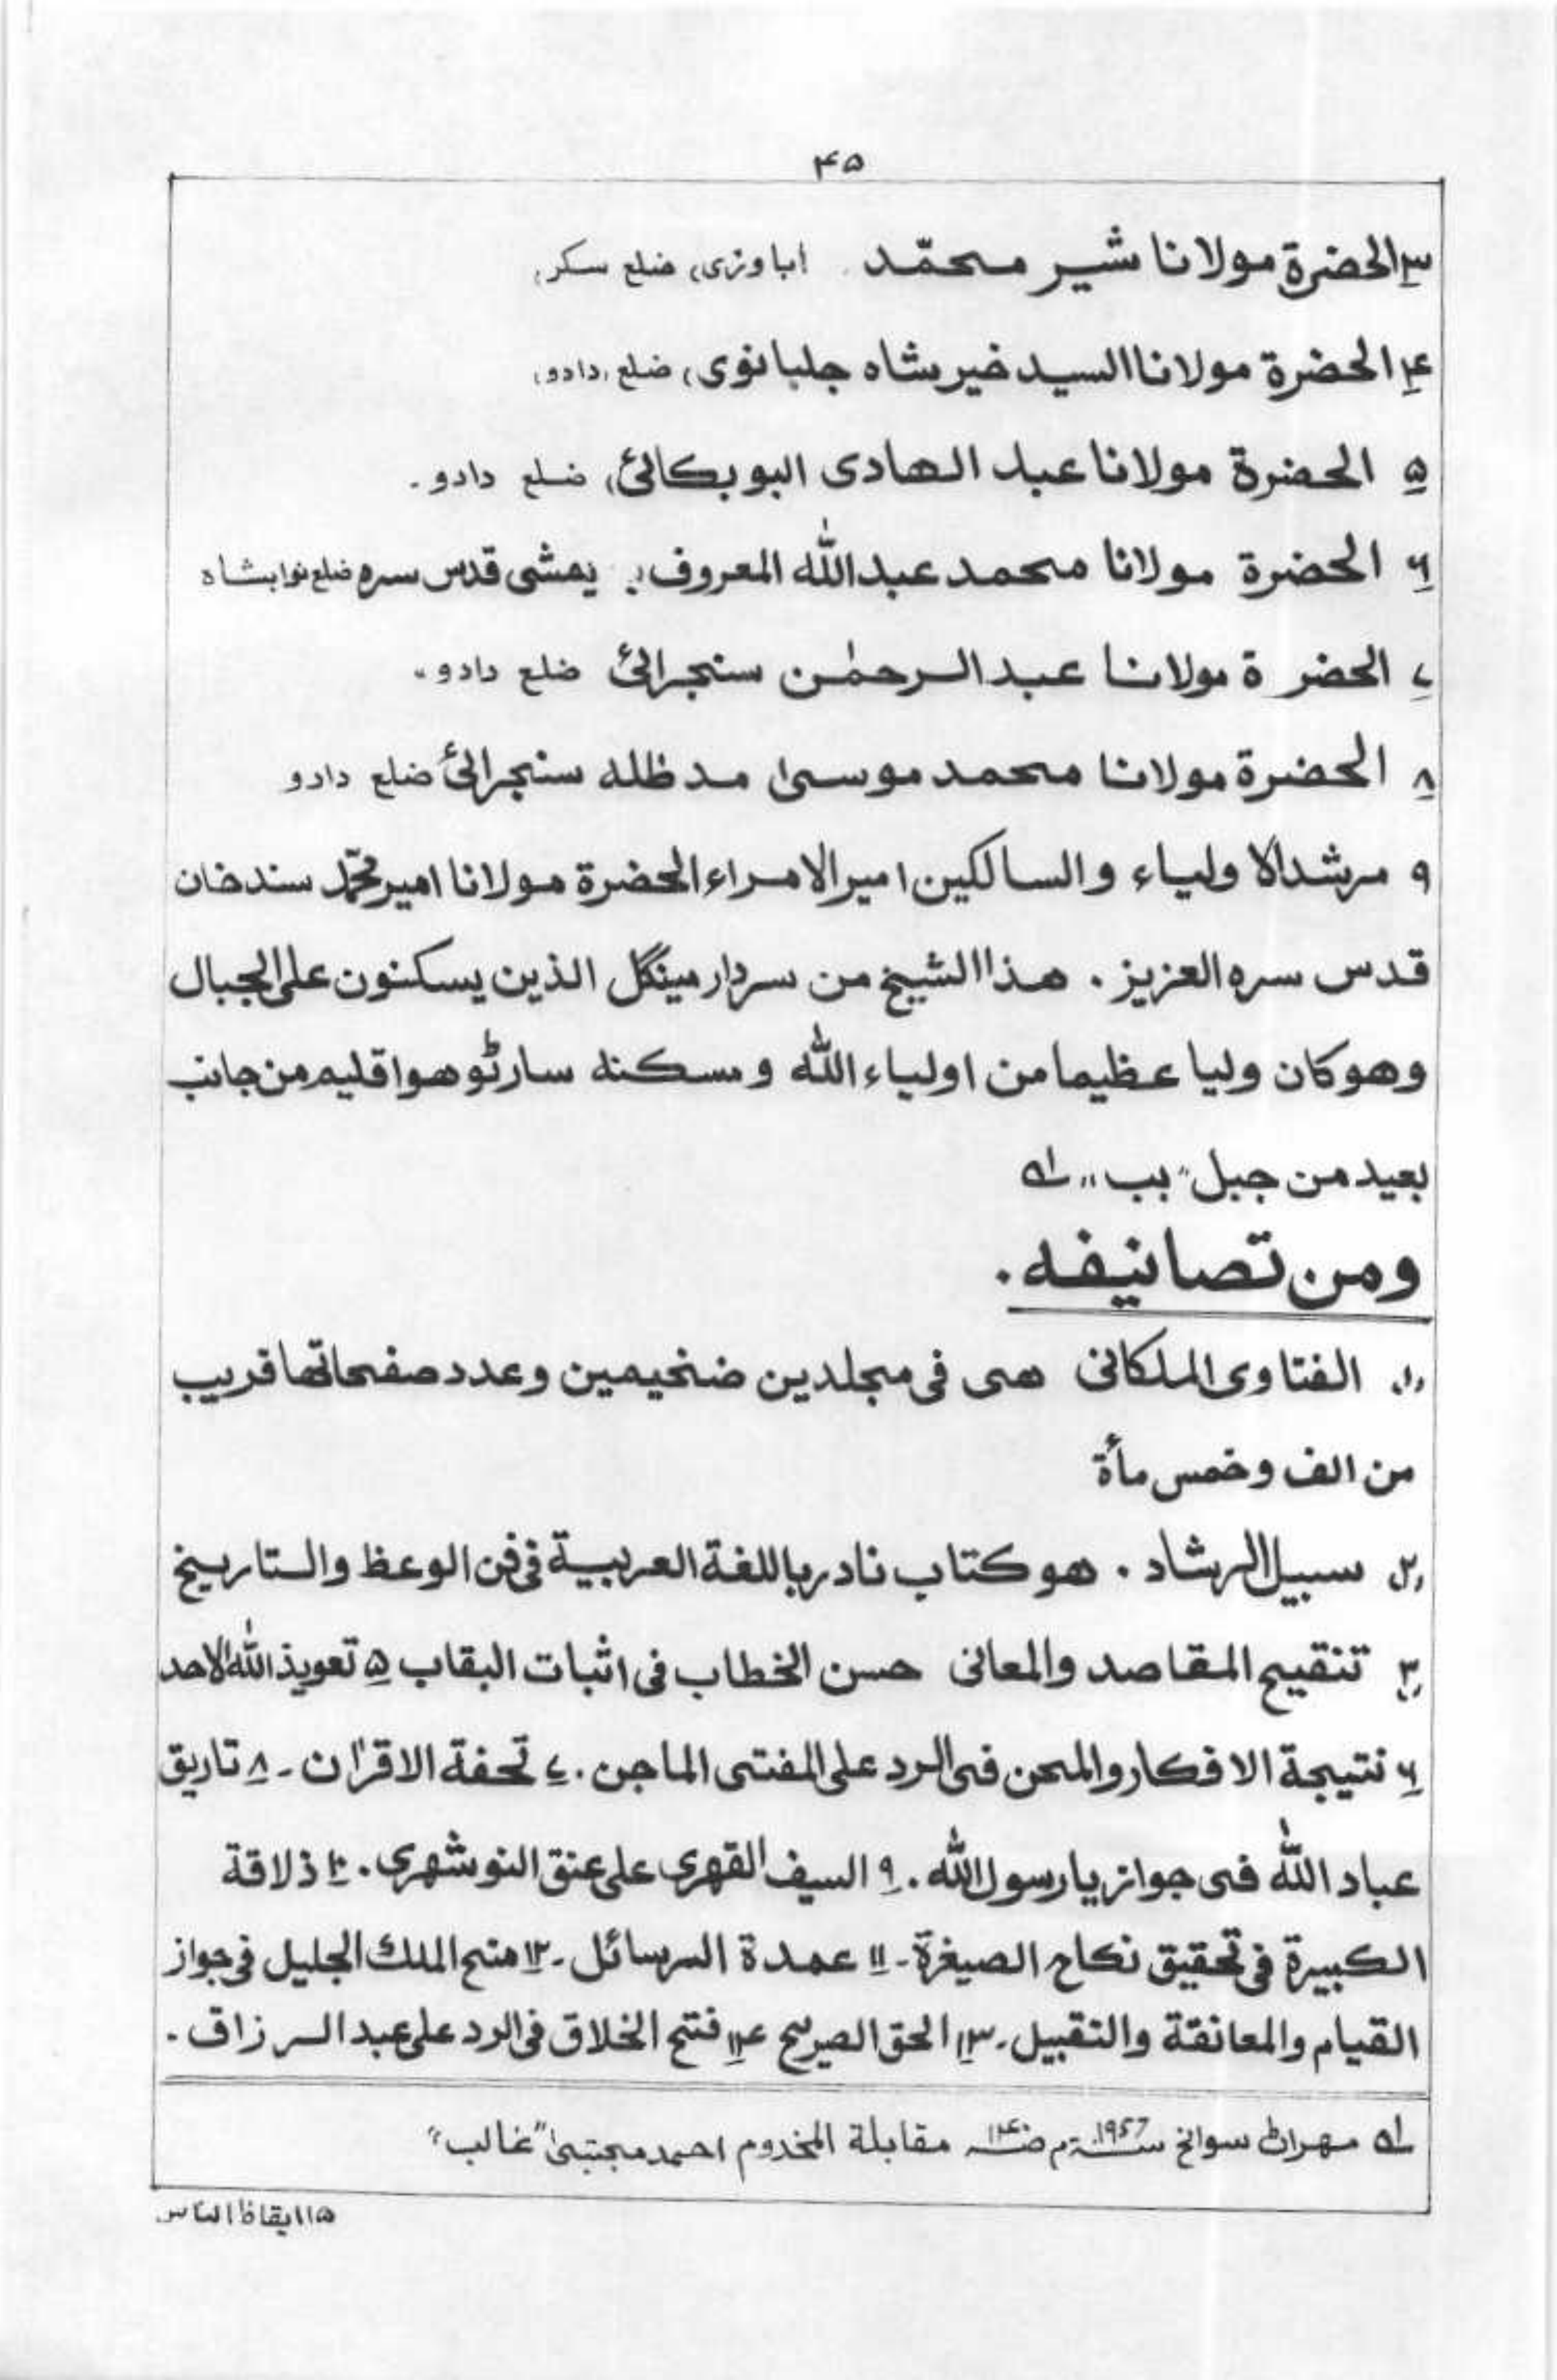 ۴۵
۳ الحضرة مولانا شیر محمّد اباوزی، ضلع سکر،
۴ الحضرة مولانا السید خیر شاه جلبانوی، ضلع، دادو،
۵ الحضرة مولانا عبد الهادی البوبکائی، ضلع دادو۔
۶ الحضرة مولانا محمد عبد اللّٰه المعروف بہ یمشی قدس سره ضلع نوابشاه
۷ الحضرة مولانا عبد الرحمٰن سنجرائی ضلع دادو۔
۸ الحضرة مولانا محمد موسیٰ مد ظله سنجرائی ضلع دادو
۹ مرشد الاولیاء والسالکین امیر الامراء الحضرة مولانا امیر محمّد سندخان
قدس سره العزیز۔ هذا الشیخ من سردار مینگل الذین یسکنون علی الجبال
وهو کان ولیا عظیما من اولیاء اللّٰه ومسکنه سارٹو هو اقلیم من جانب
بعید من جبل "بب" ۱ه
ومن تصانیفه۔
(۱) الفتاوی الملکانی هی فی مجلدین ضخیمین وعدد صفحاتها قریب
من الف وخمس مأة
(۲) سبیل الرشاد۔ هو کتاب نادر باللغة العربیة فی فن الوعظ والتاریخ
(۳) تنقیح المقاصد والمعانی حسن الخطاب فی اثبات البقاب ۵ تعویذ اللّٰه الاحد
۶ نتیجة الافکار والمحن فی الرد علی المفتی الماجن۔ ۷ تحفة الاقرٰان۔ ۸ تاریق
عباد اللّٰه فی جواز یا رسول اللّٰه۔ ۹ السیف القهری علی عنق النوشهری۔ ۱۰ ذلاقة
الکبیرة فی تحقیق نکاح الصیغرة۔ ۱۱ عمدة الرسائل۔ ۱۲ منح الملك الجلیل فی جواز
القیام والمعانقة والتقبیل۔ ۱۳ الحق الصریح ۱۴ فتح الخلاق فی الرد علی عبد الرزاق۔
۱ه مهران سوانح سنة ۱۹۵۷م ص۱۴۰ مقابلة المخدوم احمد مجتبیٰ "غالب"
۱۵ ایقاظ الناس